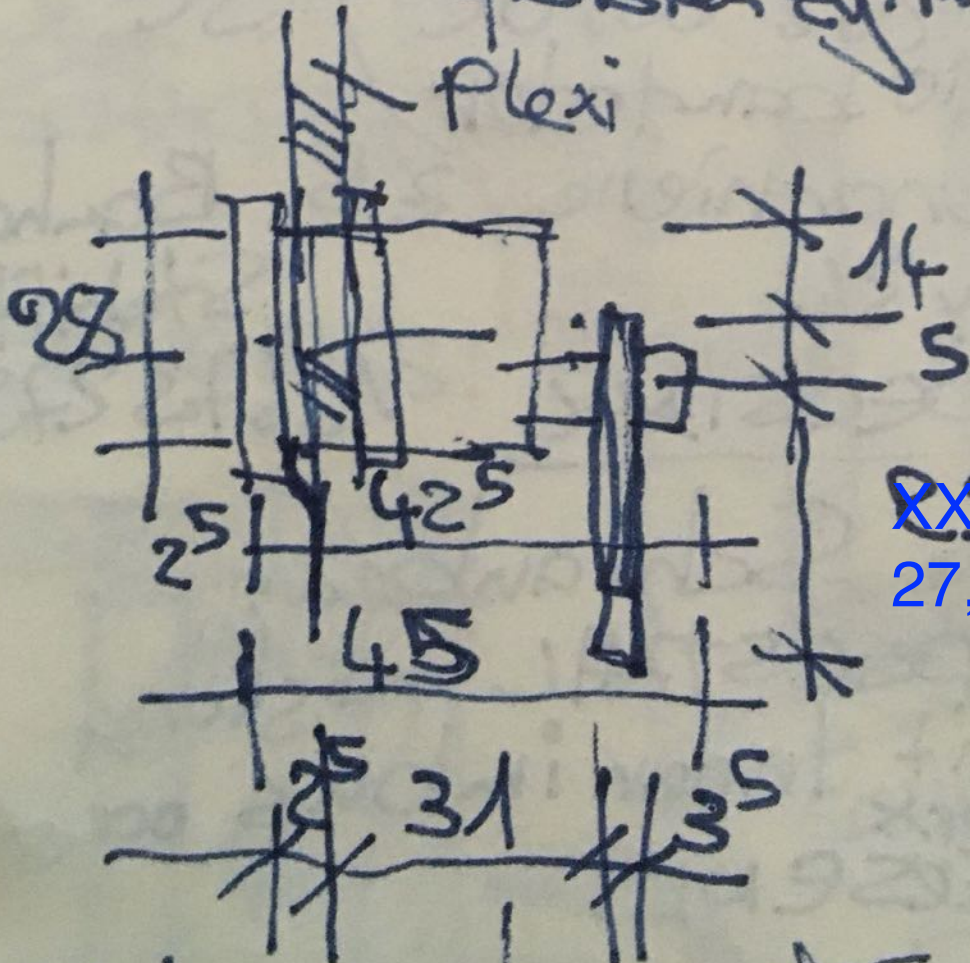 Plexi
14
28
5
42⁵
2⁵
XX
27,
45
2⁵ 31 3⁵